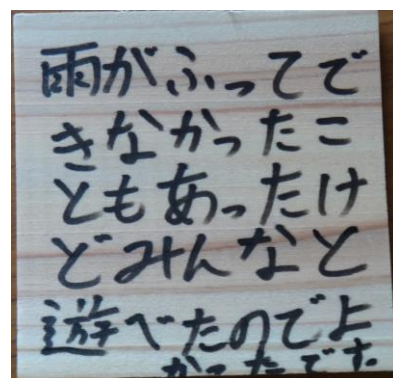 雨がふってで
きなかったこ
ともあったけ
どみんなと
遊べたのでよ
かったです